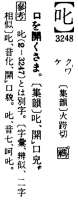 【叱】
3248
クワ
ケ
〔集韻〕火跨切 禡
口を開くさま。〔集韻〕叱、開口皃。
參考 𠮟(8-3247)とは別字。〔字彙、辨似、二字
相似〕叱、音化、開口貌、𠮟、音七、呵𠮟。